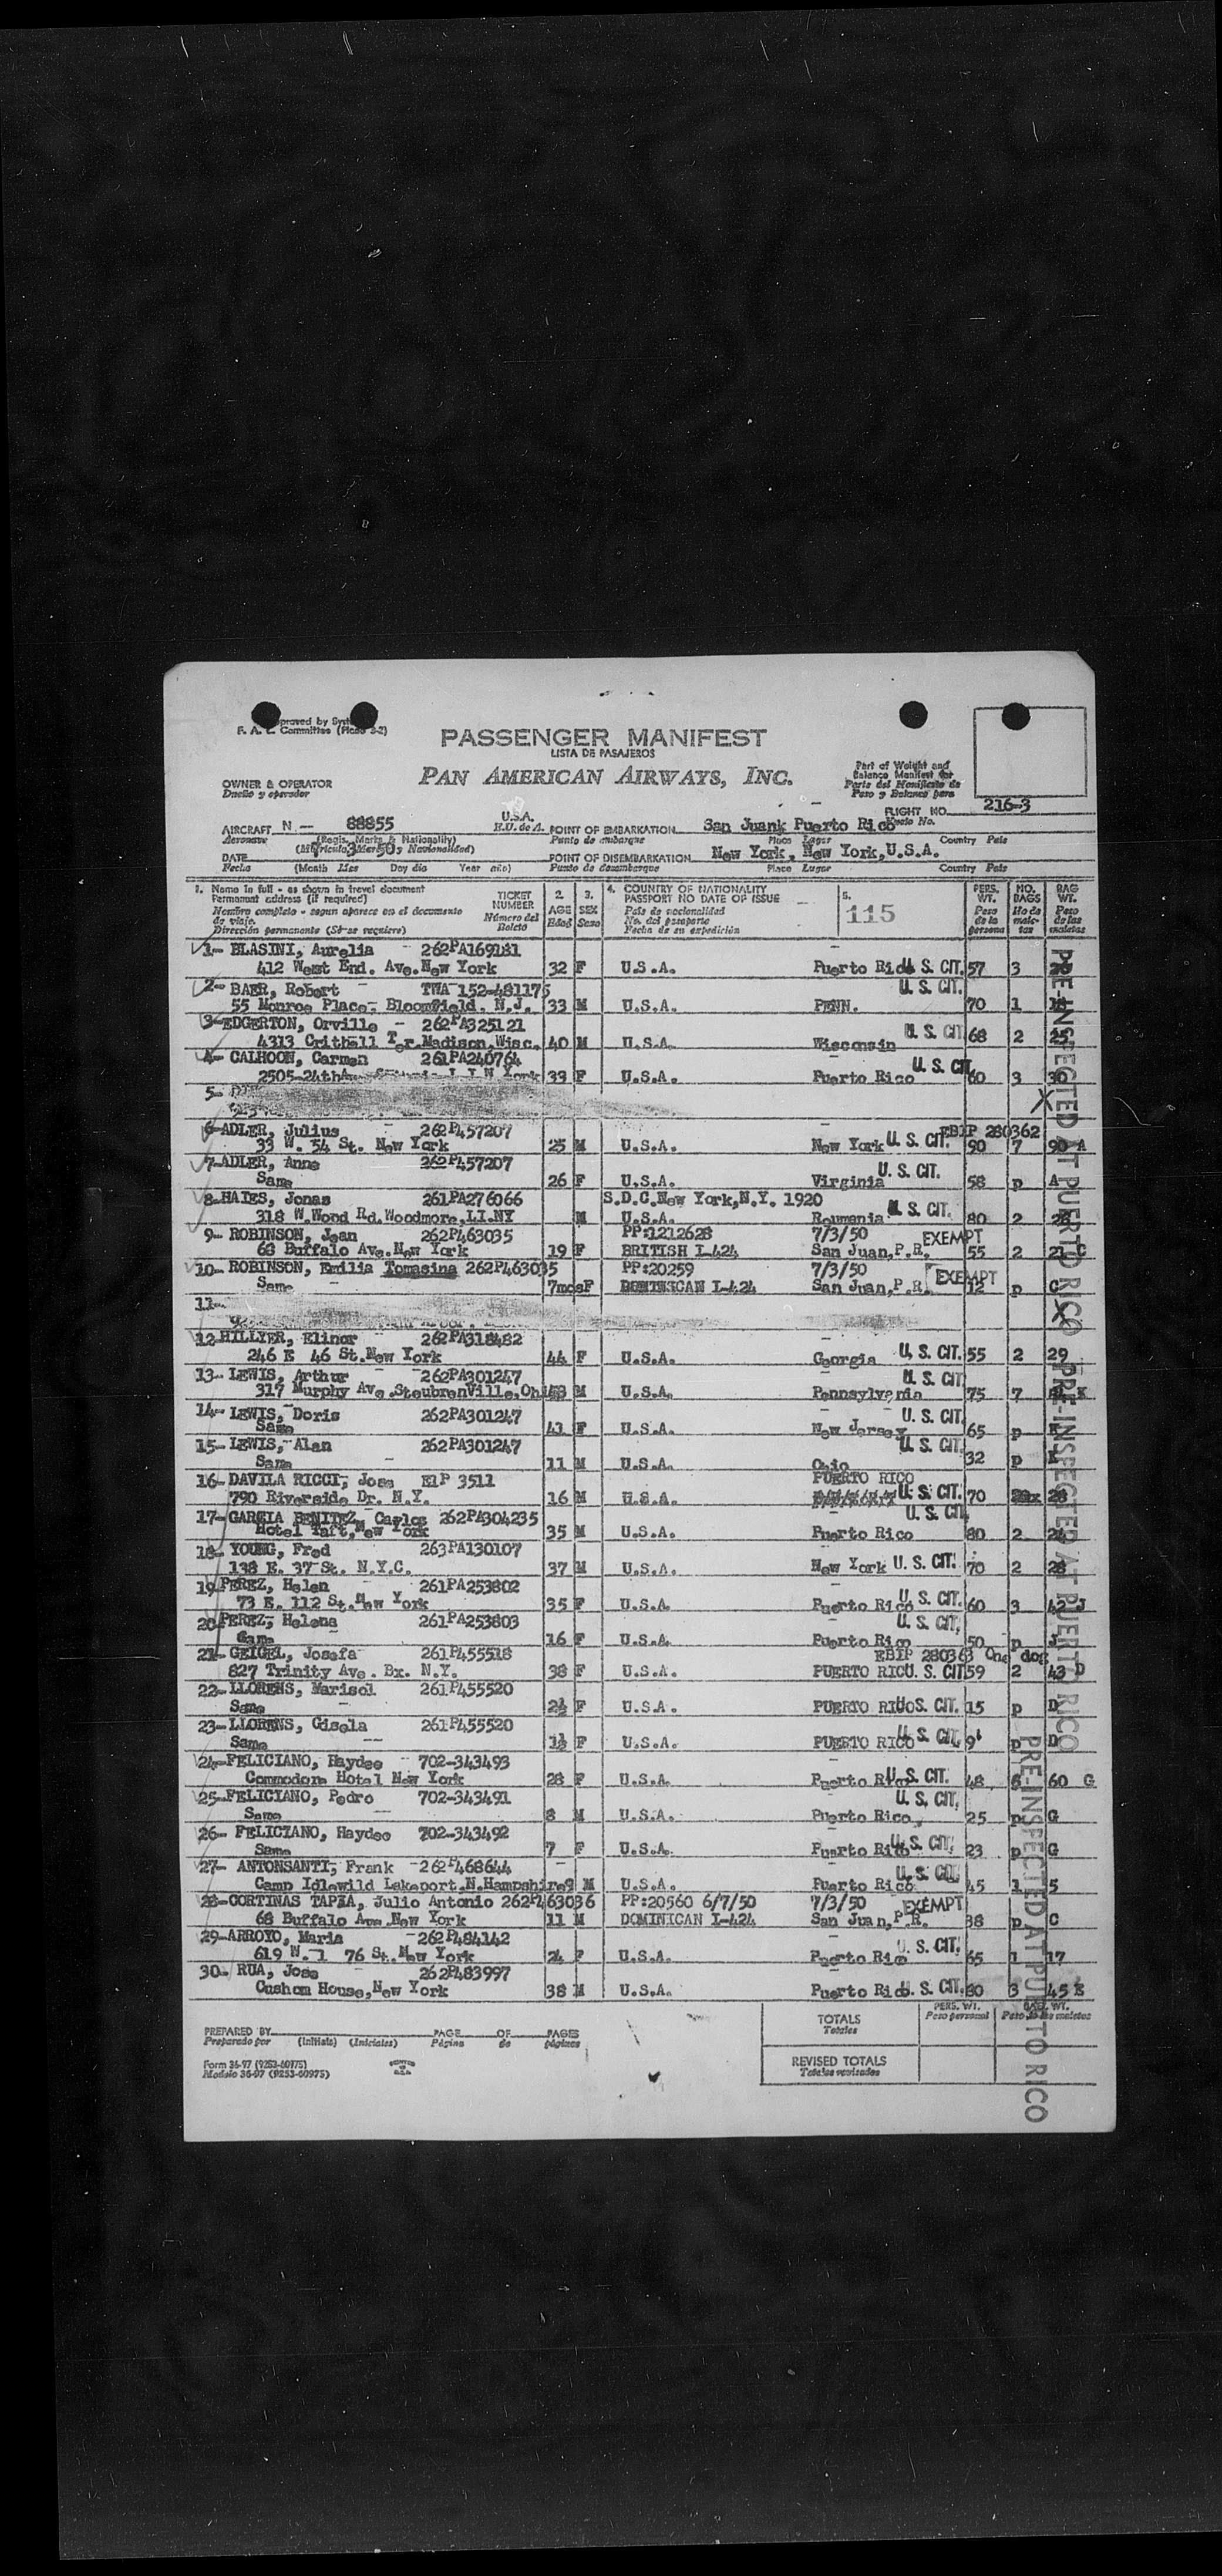 Approved by Syst
F. A. L. Committee
PASSENGER MANIFEST
LISTA DE PASAJEROS
PAN AMERICAN AIRWAYS, INC.
Part of Weight and
Balance Manifest for
Parte del Manifiesto de
Peso y Balance para
OWNER & OPERATOR
Dueño y operador
FLIGHT NO. 216-3
Vuelo No.
AIRCRAFT N - 88855 U.S.A. POINT OF EMBARKATION San Juank Puerto Rico
Aeronave (Regis. Marks & Nationality) E.U. de A. Punto de embarque Place Lugar Country Pais
DATE POINT OF DISEMBARKATION New York, New York, U.S.A.
Fecha (Month Mes Day dia Year año) Punto de desembarque Place Lugar Country Pais
1. Name in full - as shown in travel document
Permanent address (if required)
Nombre completo - segun aparece en el documento de viaje.
Dirección permanente (Si se requiere)
TICKET NUMBER
Número del Boleto
2. AGE Edad
3. SEX Sexo
4. COUNTRY OF NATIONALITY
PASSPORT NO DATE OF ISSUE
Pais de nacionalidad
No. del pasaporte
Fecha de su expedición
5. 115
PERS. WT. Peso de la persona
NO. BAGS No de maletas
BAG WT. Peso de las maletas
1- BLASINI, Aurelia - 262PA169181
412 West End. Ave. New York 32 F U.S.A. Puerto Rico U. S. CIT. 57 3
2- BAER, Robert - TWA 152-481175 U. S. CIT.
55 Monroe Place- Bloomfield. N.J. 33 M U.S.A. PENN. 70 1
3- EDGERTON, Orville - 262PA325121
4313 Crithell Ter. Madison, Wisc. 40 M U.S.A. Wisconsin U. S. CIT 68 2 25
4- CALHOON, Carmen 261PA240764 U. S. CIT
2505-24th 33 F U.S.A. Puerto Rico 60 3 30
5-
6- ADLER, Julius - 262P457207 EBIP 280362
33 W. 54 St. New York 25 M U.S.A. New York U. S. CIT. 90 7 90 A
7- ADLER, Anne 262P457207 U. S. CIT.
Same 26 F U.S.A. Virginia 58 p A
8- HAIES, Jonas 261PA276066 S.D.C. New York, N.Y. 1920
318 W. Wood Rd. Woodmere, LI. NY M U.S.A. Roumania U. S. CIT. 80 2 28
9- ROBINSON, Jean 262P463035 PP:1212628 7/3/50 EXEMPT
68 Buffalo Ave. New York 19 F BRITISH I-424 San Juan, P.R. 55 2 21 C
10- ROBINSON, Emilia Tomasina 262P463035 PP:20259 7/3/50 EXEMPT
Same 7mos F DOMINICAN I-424 San Juan, P.R. 12 p C
11-
12 HILLYER, Elinor 262PA318482
246 E 46 St. New York 44 F U.S.A. Georgia U. S. CIT. 55 2 29
13- LEWIS, Arthur - 262PA301247 U. S. CIT
317 Murphy Ave. SteubrenVille, Ohio M U.S.A. Pennsylvania 75 7 K
14- LEWIS, Doris 262PA301247 U. S. CIT.
Same 41 F U.S.A. New Jersey 65 p K
15- LEWIS, Alan 262PA301247 U. S. CIT
Same 11 M U.S.A. Ohio 32 p
16- DAVILA RICCI, Jose EIP 3511 PUERTO RICO
790 Riverside Dr. N.Y. 16 M U.S.A. U. S. CIT. 70 28
17- GARCIA BENITEZ, Carlos 262PA304235 U. S. CIT
Hotel Taft, New York 35 M U.S.A. Puerto Rico 80 2 24
18- YOUNG, Fred 263PA130107
138 E. 37 St. N.Y.C. 37 M U.S.A. New York U. S. CIT. 70 2 28
19 PEREZ, Helen 261PA253802
73 E. 112 St. New York 35 F U.S.A. Puerto Rico U. S. CIT. 60 3 42 J
20 PEREZ, Helena 261PA253803 U. S. CIT,
Same 16 F U.S.A. Puerto Rico 50 p J
21- GEIGEL, Josefa 261P455518 EBIP 280363 One dog
827 Trinity Ave. Bx. N.Y. 38 F U.S.A. PUERTO RICO U. S. CIT 59 2 43 D
22- LLORENS, Marisol 261P455520
Same 2½ F U.S.A. PUERTO RICO U. S. CIT. 15 p D
23- LLORENS, Gisela 261P455520
Same 1½ F U.S.A. PUERTO RICO U. S. CIT, 9 p D
24- FELICIANO, Haydee - 702-343493
Commodore Hotel New York 28 F U.S.A. Puerto Rico U. S. CIT. 48 8 60 G
25- FELICIANO, Pedro 702-343491 U. S. CIT,
Same 8 M U.S.A. Puerto Rico 25 p G
26- FELICIANO, Haydee 702-343492
Same 7 F U.S.A. Puerto Rico U. S. CIT, 23 p G
27- ANTONSANTI, Frank - 262P468644 U. S. CIT
Camp Idlewild Lakeport. N. Hampshire 9 M U.S.A. Puerto Rico 45 1 5
28- CORTINAS TAPIA, Julio Antonio 262P463036 PP:20560 6/7/50 7/3/50 EXEMPT
68 Buffalo Ave. New York 11 M DOMINICAN I-424 San Juan, P.R. 38 p C
29- ARROYO, Maria - 262P484142
619 W. 1 76 St. New York 24 F U.S.A. Puerto Rico U. S. CIT. 65 1 17
30- RUA, Jose 262P483997
Cushom House, New York 38 M U.S.A. Puerto Rico U. S. CIT. 80 3 45 E
PRE-INSPECTED AT PUERTO RICO
PRE-INSPECTED AT PUERTO RICO
PRE-INSPECTED AT PUERTO RICO
PREPARED BY PAGE OF PAGES
Preparado por (Initials) (Iniciales) Página de páginas
TOTALS
Totales
PERS. WT.
Peso personal
BAG. WT.
Peso de las maletas
REVISED TOTALS
Totales revisados
Form 36-97 (9253-60975)
Modelo 36-97 (9253-60975)
PRINTED IN U.S.A.